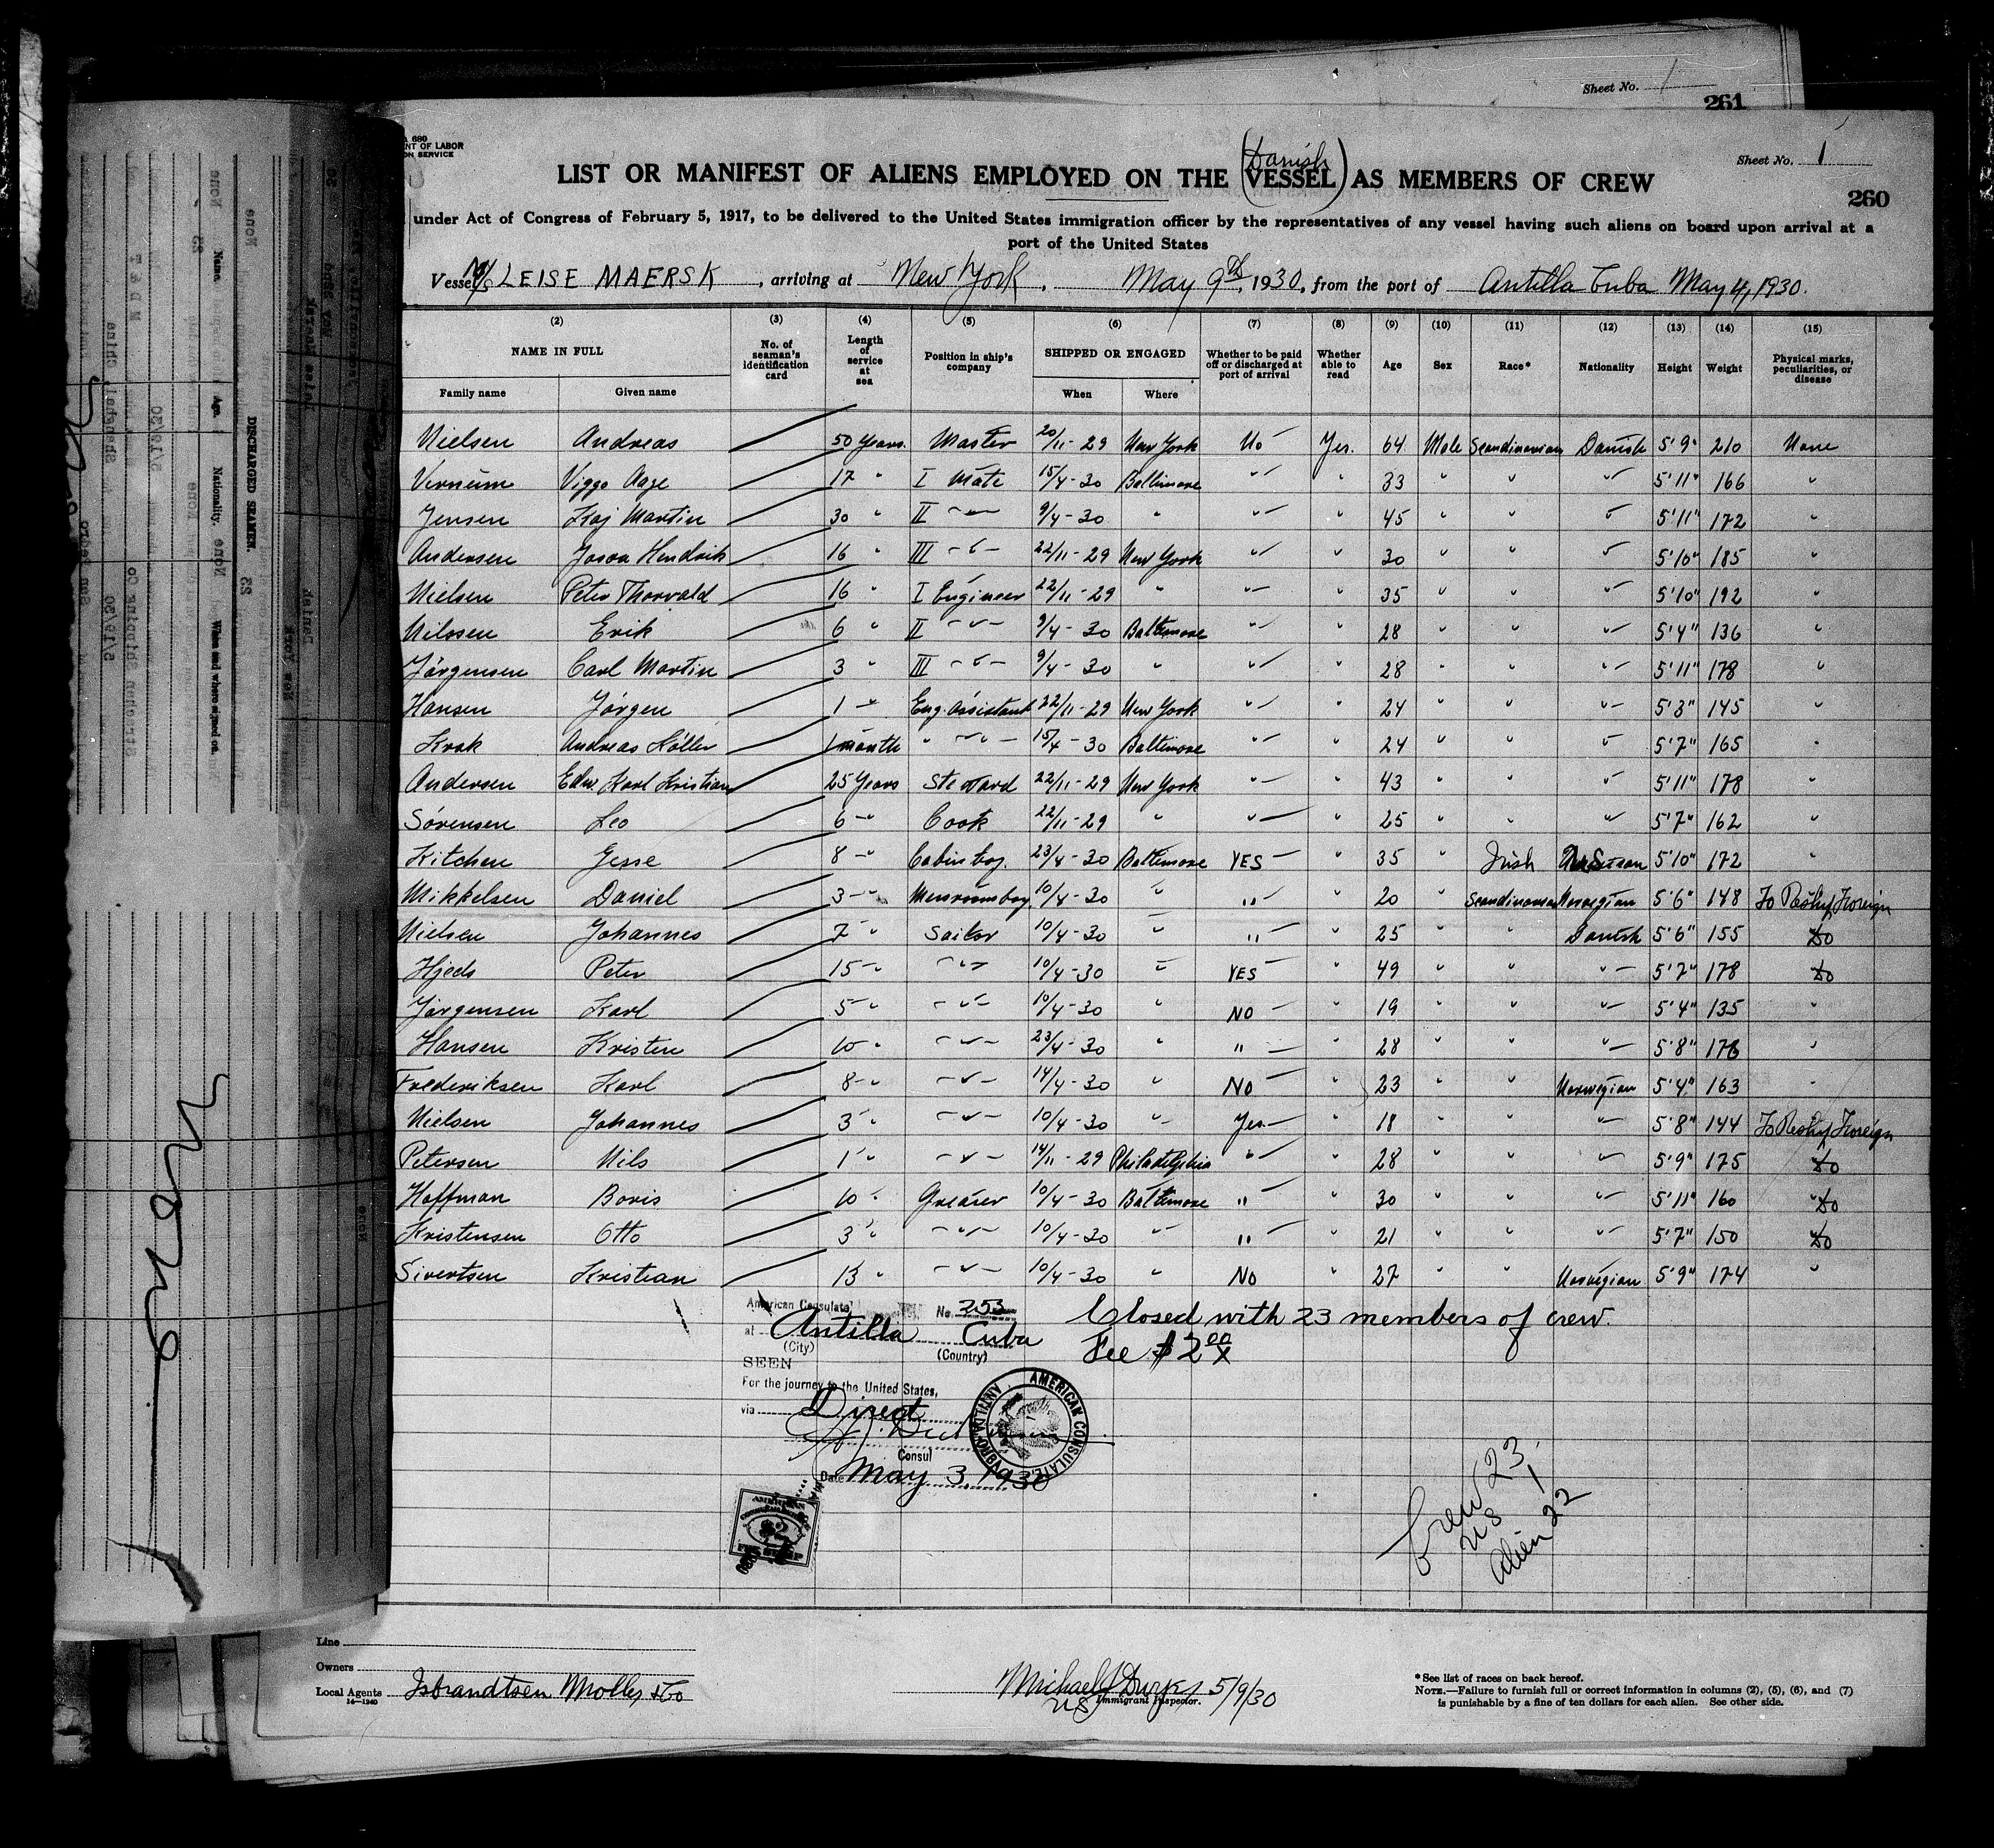 Sheet No. 1
261
A 680
NT OF LABOR
ON SERVICE
Sheet No. 1
(Danish
LIST OR MANIFEST OF ALIENS EMPLOYED ON THE (VESSEL) AS MEMBERS OF CREW
260
under Act of Congress of February 5, 1917, to be delivered to the United States immigration officer by the representatives of any vessel having such aliens on board upon arrival at a
port of the United States
Vessel M/S LEISE MAERSK, arriving at New York, May 9th, 1930, from the port of Antilla Cuba May 4, 1930.
(2) (3) (4) (5) (6) (7) (8) (9) (10) (11) (12) (13) (14) (15)
NAME IN FULL No. of seaman's identification card Length of service at sea Position in ship's company SHIPPED OR ENGAGED Whether to be paid off or discharged at port of arrival Whether able to read Age Sex Race* Nationality Height Weight Physical marks, peculiarities, or disease
Family name Given name When Where
Nielsen Andreas 50 Years. Master 20/11-29 New York No Yes. 64 Male Scandinavian Danish 5'9" 210 None
Vernum Viggo Aage 17 " I Mate 15/4-30 Baltimore " " 33 " " " 5'11" 166 "
Jensen Kaj Martin 30 " II - " - 9/4-30 " " " 45 " " " 5'11" 172 "
Andersen Hendrik 16 " III - " - 22/11-29 New York " " 30 " " " 5'10" 185 "
Nielsen Peter Thorvald 16 " I Engineer 22/11-29 " " " 35 " " " 5'10" 192 "
Nilssen Erik 6 " II - " - 9/4-30 Baltimore " " 28 " " " 5'4" 136 "
Jørgensen Carl Martin 3 " III - " - 9/4-30 " " " 28 " " " 5'11" 178 "
Hansen Jørgen 1 - " Eng. assistant 22/11-29 New York " " 24 " " " 5'3" 145 "
Krok Andreas Höller 1 month " - " - 15/4-30 Baltimore " " 24 " " " 5'7" 165 "
Andersen Edw. Karl Kristian 25 Years Steward 22/11-29 New York " " 43 " " " 5'11" 178 "
Sørensen Leo 6 - " Cook 22/11-29 " " " 25 " " " 5'7" 162 "
Kitchen Jesse 8 - " Cabin boy. 23/4-30 Baltimore YES " 35 " Irish 5'10" 172 "
Mikkelsen Daniel 3 - " Messroomboy. 10/4-30 " " " 20 " Scandinavian Norwegian 5'6" 148 To Reship Foreign
Nielsen Johannes 7 " Sailor 10/4-30 " " " 25 " " Danish 5'6" 155 Do
Hjeds Peter 15 - " - " - 10/4-30 " YES " 49 " " " 5'7" 178 Do
Jørgensen Karl 5 - " - " - 10/4-30 " NO " 19 " " " 5'4" 135 "
Hansen Kristen 10 " - " - 23/4-30 " " " 28 " " " 5'8" 176 "
Frederiksen Karl 8 - " - " - 14/4-30 " NO " 23 " " Norwegian 5'4" 163 "
Nielsen Johannes 3 " - " - 10/4-30 " Yes " 18 " " " 5'8" 144 To Reship Foreign
Petersen Nils 1 " - " - 14/11-29 Philadelphia " " 28 " " " 5'9" 175 Do
Hoffman Boris 10 " Greaser 10/4-30 Baltimore " " 30 " " " 5'11" 160 Do
Kristensen Otto 3 " - " - 10/4-30 " " " 21 " " " 5'7" 150 Do
Sivertsen Kristian 13 " - " - 10/4-30 " NO " 27 " " Norwegian 5'9" 174 "
American Consulate No. 253 Closed with 23 members of crew.
at Antilla Cuba
(City) (Country) Fee $2.00
SEEN
For the journey to the United States,
via Direct
Consul
Date May 3, 1930
AMERICAN CONSULATE ANTILLA, CUBA
Crew 23
US 1
Alien 22
Line
Owners
Local Agents Isbrandtsen Moller & Co
14-1240
Michael J Durkes 5/9/30
US Immigrant Inspector.
*See list of races on back hereof.
NOTE.—Failure to furnish full or correct information in columns (2), (5), (6), and (7)
is punishable by a fine of ten dollars for each alien. See other side.